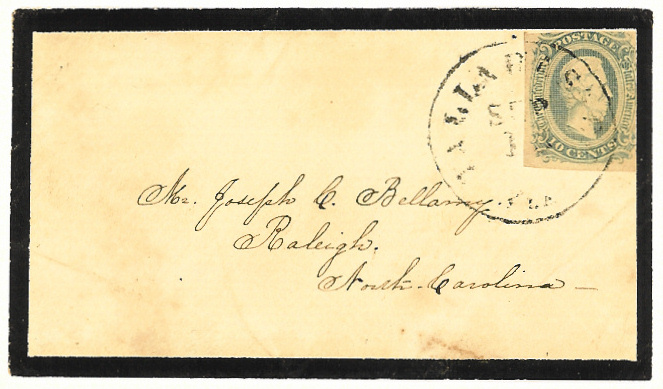 POSTAGE
10 CENTS
FLA
Mr. Joseph C. Bellamy.
Raleigh.
North-Carolina —